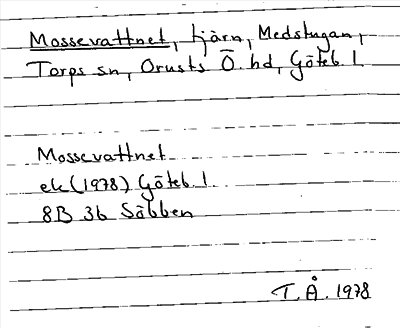 Mossevattnet, tjärn, Medstugan,
Torps sn, Orusts Ö. hd, Göteb. l.
Mossevattnet
ek (1978) Göteb. l.
8B 3b Säbben
T. Å. 1978